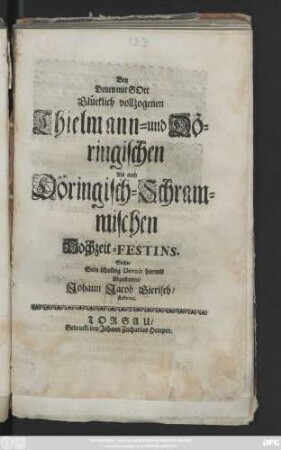 123
Bey
Denen mit GOtt
Glücklich vollzogenen
Thielmann- und Dö-
ringischen
Als auch
Döringisch-Schram-
mischen
Hochzeit-FESTINS.
Solte
Sein schuldig Devoir hiermit
Abgestatten/
Johann Jacob Gierisch/
TORGAU/
Gedruckt bey Johann Zacharias Hempen.